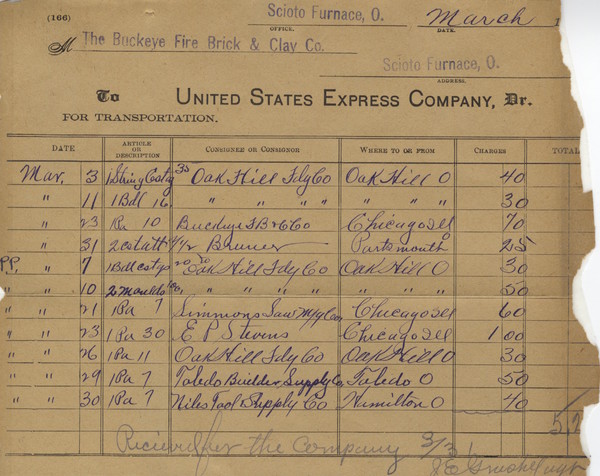 (166)
Scioto Furnace, O. March 1
OFFICE. DATE.
M The Buckeye Fire Brick & Clay Co.
Scioto Furnace, O.
ADDRESS.
To UNITED STATES EXPRESS COMPANY, Dr.
FOR TRANSPORTATION.
DATE ARTICLE OR DESCRIPTION CONSIGNEE OR CONSIGNOR WHERE TO OR FROM CHARGES TOTAL
Mar. 3 1 String Castg 35 Oak Hill Fdy Co Oak Hill O 40
" 11 1 Bdl 16 " " " " " " 30
" 23 1 Pa 10 Buckeye F B & C Co Chicago Ill 70
" 31 2 Bruner Portsmouth 25
P.P. 7 1 Bdl cstgs 20 Oak Hill Fdy Co Oak Hill O 30
" " 10 2 moulds 100 " " " " " 50
" " 21 1 Pa 7 Simmons Saw Mfg Co Chicago Ill 60
" " 23 1 Pa 30 E P Stevens Chicago Ill 1 00
" " 26 1 Pa 11 Oak Hill Fdy Co Oak Hill O 30
" " 29 1 Pa 7 Toledo Builders Supply Co Toledo O 50
" " 30 1 Pa 7 Niles Tool & Supply Co Hamilton O 40
5,2
Recieved for the Company 3/31